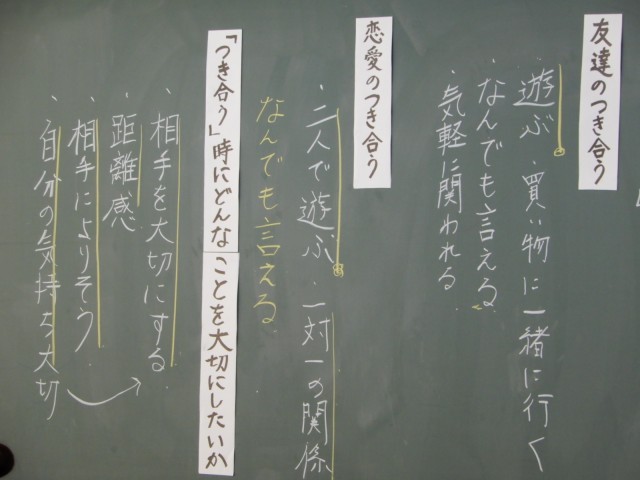 友達のつき合う
・遊ぶ・買い物に一緒に行く
・なんでも言える
・気軽に関われる
恋愛のつき合う
・二人で遊ぶ・一対一の関係
なんでも言える
「つき合う」時にどんなことを大切にしたいか
・相手を大切にする
・距離感
・相手によりそう
・自分の気持ち大切